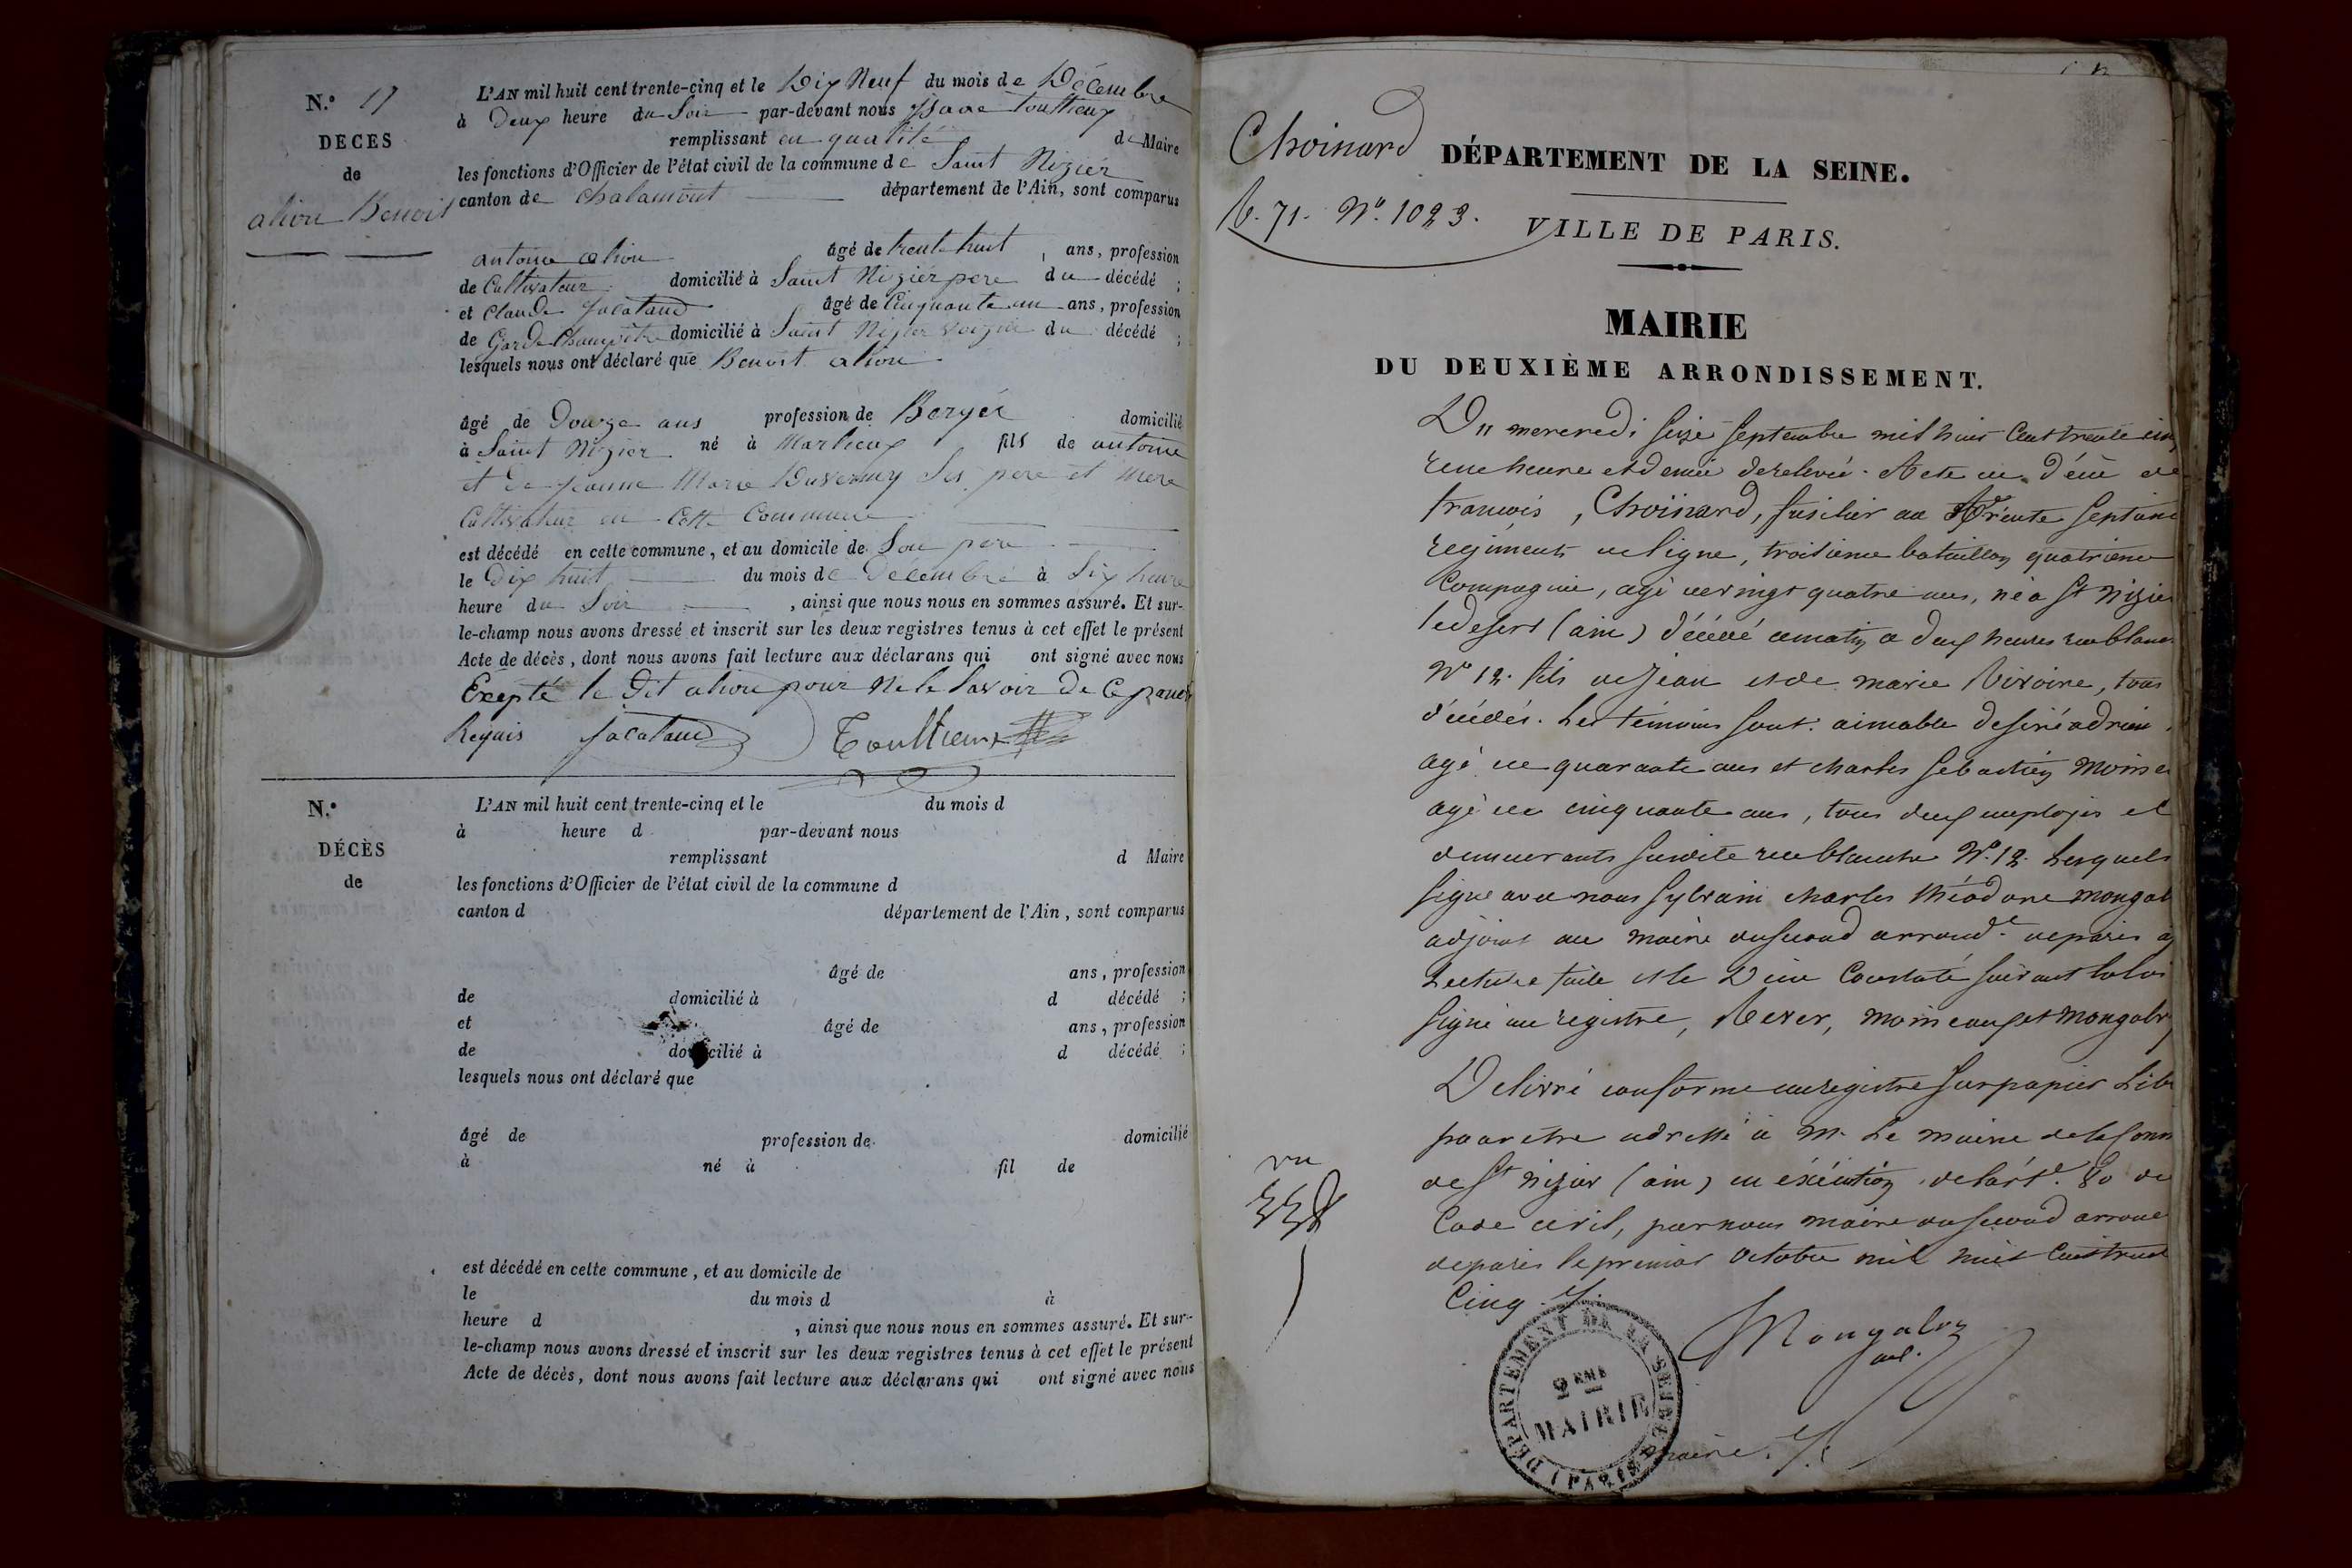 N.º 17
DECES
de
ahon Benoit
L'AN mil huit cent trente-cinq et le Dix Neuf du mois de Décembre
à Deux heure du Soir par-devant nous
remplissant en qualité de Maire
les fonctions d'Officier de l'état civil de la commune de Saint Nizier
canton de Chalamont département de l'Ain, sont comparus
antoine ahon âgé de trente huit ans, profession
de Cultivateur domicilié à Saint Nizier pere du décédé ;
et Claude Jacataud âgé de Cinquante un ans, profession
de Garde Champêtre domicilié à Saint Nizier voizin du décédé ;
lesquels nous ont déclaré que Benoit ahon
âgé de Douze ans profession de Bergér domicilié
à Saint Nizier né à Marlieux fils de antoine
et de jeanne Marie Duvernay Ses pere et mere
Cultivateur en Cette Commune
est décédé en cette commune, et au domicile de Son pere
le Dix huit du mois de Decembre à Six heure
heure du Soir , ainsi que nous nous en sommes assuré. Et sur-
le-champ nous avons dressé et inscrit sur les deux registres tenus à cet effet le présent
Acte de décès, dont nous avons fait lecture aux déclarans qui ont signé avec nous
Exepté le Dit ahon pour ne le Savoir De Ce
Requis Jacataud Toultieux
N.º
DÉCÈS
de
L'AN mil huit cent trente-cinq et le du mois d
à heure d par-devant nous
remplissant d Maire
les fonctions d'Officier de l'état civil de la commune d
canton d département de l'Ain, sont comparus
âgé de ans, profession
de domicilié à d décédé ;
et âgé de ans, profession
de domicilié à d décédé ;
lesquels nous ont déclaré que
âgé de profession de domicilié
à né à fil de
est décédé en cette commune, et au domicile de
le du mois d à
heure d , ainsi que nous nous en sommes assuré. Et sur-
le-champ nous avons dressé et inscrit sur les deux registres tenus à cet effet le présent
Acte de décès, dont nous avons fait lecture aux déclarans qui ont signé avec nous
Choinard
71. Nº. 1023.
DÉPARTEMENT DE LA SEINE.
VILLE DE PARIS.
MAIRIE
DU DEUXIÈME ARRONDISSEMENT.
Du mercredi Seize Septembre mil huit Cent trente cinq
une heure et demie de relevée. Acte de décès de
françois, Choinard, fusilier au trente Septième
régiment de ligne, troisième bataillon quatrième
Compagnie, agé de vingt quatre ans, né à St Nizier
le desert (ain) décédé ce matin à deux heures rue blanche
Nº 12. fils de Jean et de marie Vivoire, tous
décédés. Les témoins sont: aimable desiré adrien
agé de quarante ans et charles Sebastien
agé de cinquante ans, tous deux employés et
demeurants susdite rue blanche Nº. 12. Lesquels
signé avec nous Sylvain charles théodore
adjoint au maire du second arrond.t de paris
Lecture faite et le Décès Constaté suivant la loi
Signé au registre,
Délivré conforme au registre sur papier
pour être adressé à M. Le maire de la
de St Nizier (ain) en éxécution de l'art. 80 du
Code civil, par nous maire du second
de paris le premier octobre mil huit Cent
Cinq
vu
DÉPARTEMENT DE LA SEINE (PARIS)
2EME
MAIRIE
maire